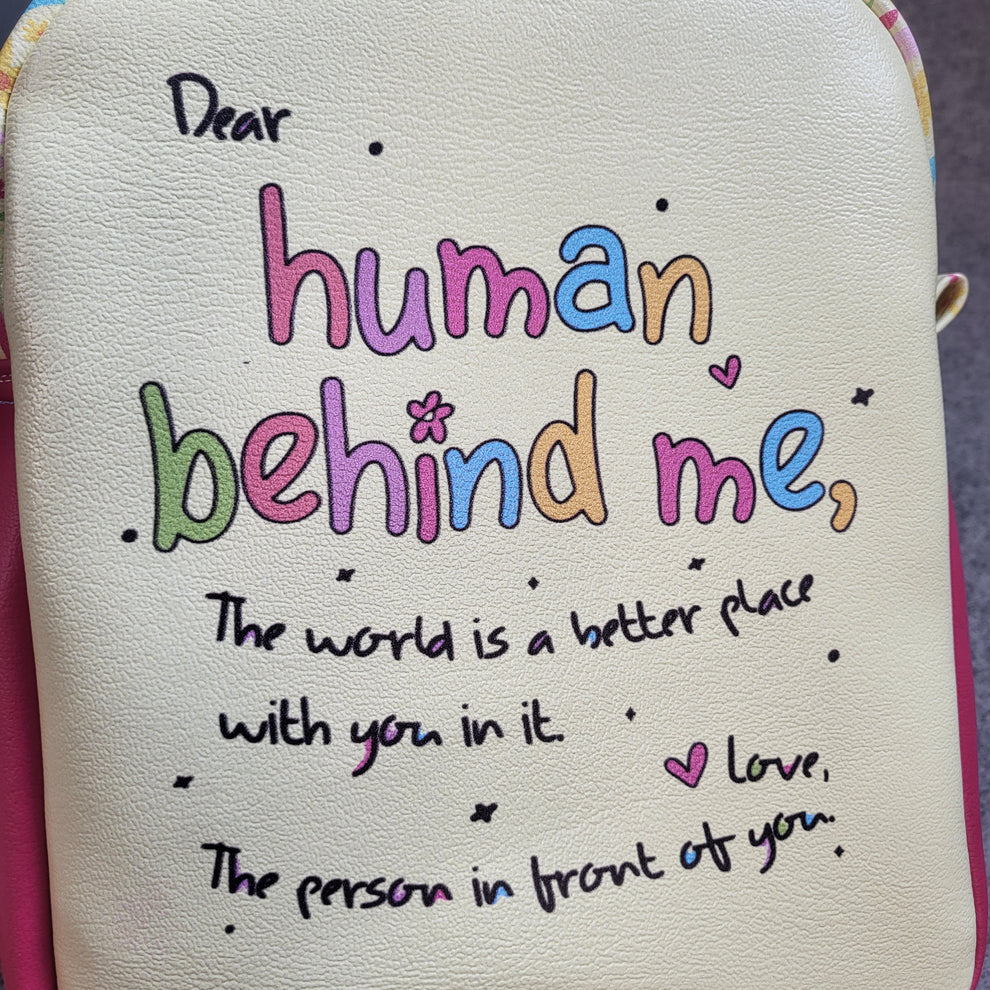 Dear
human
behind me,
The world is a better place
with you in it.
love,
The person in front of you.